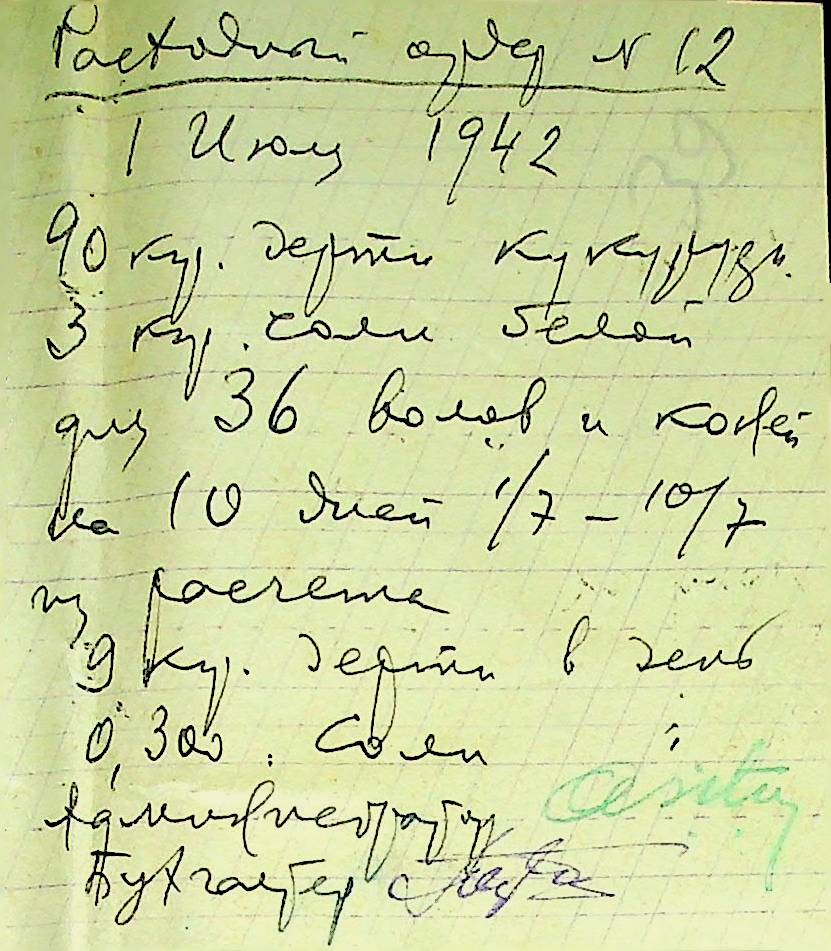 Расходный ордер N 12
1 Июля 1942
90 кгр. дерти кукурузн.
3 кгр. соли белой
для 36 волов и коней
на 10 дней 1/7 – 10/7
из расчета
9 кгр. дерти в день
0,300 . соли "
Администратор
Бухгалтер